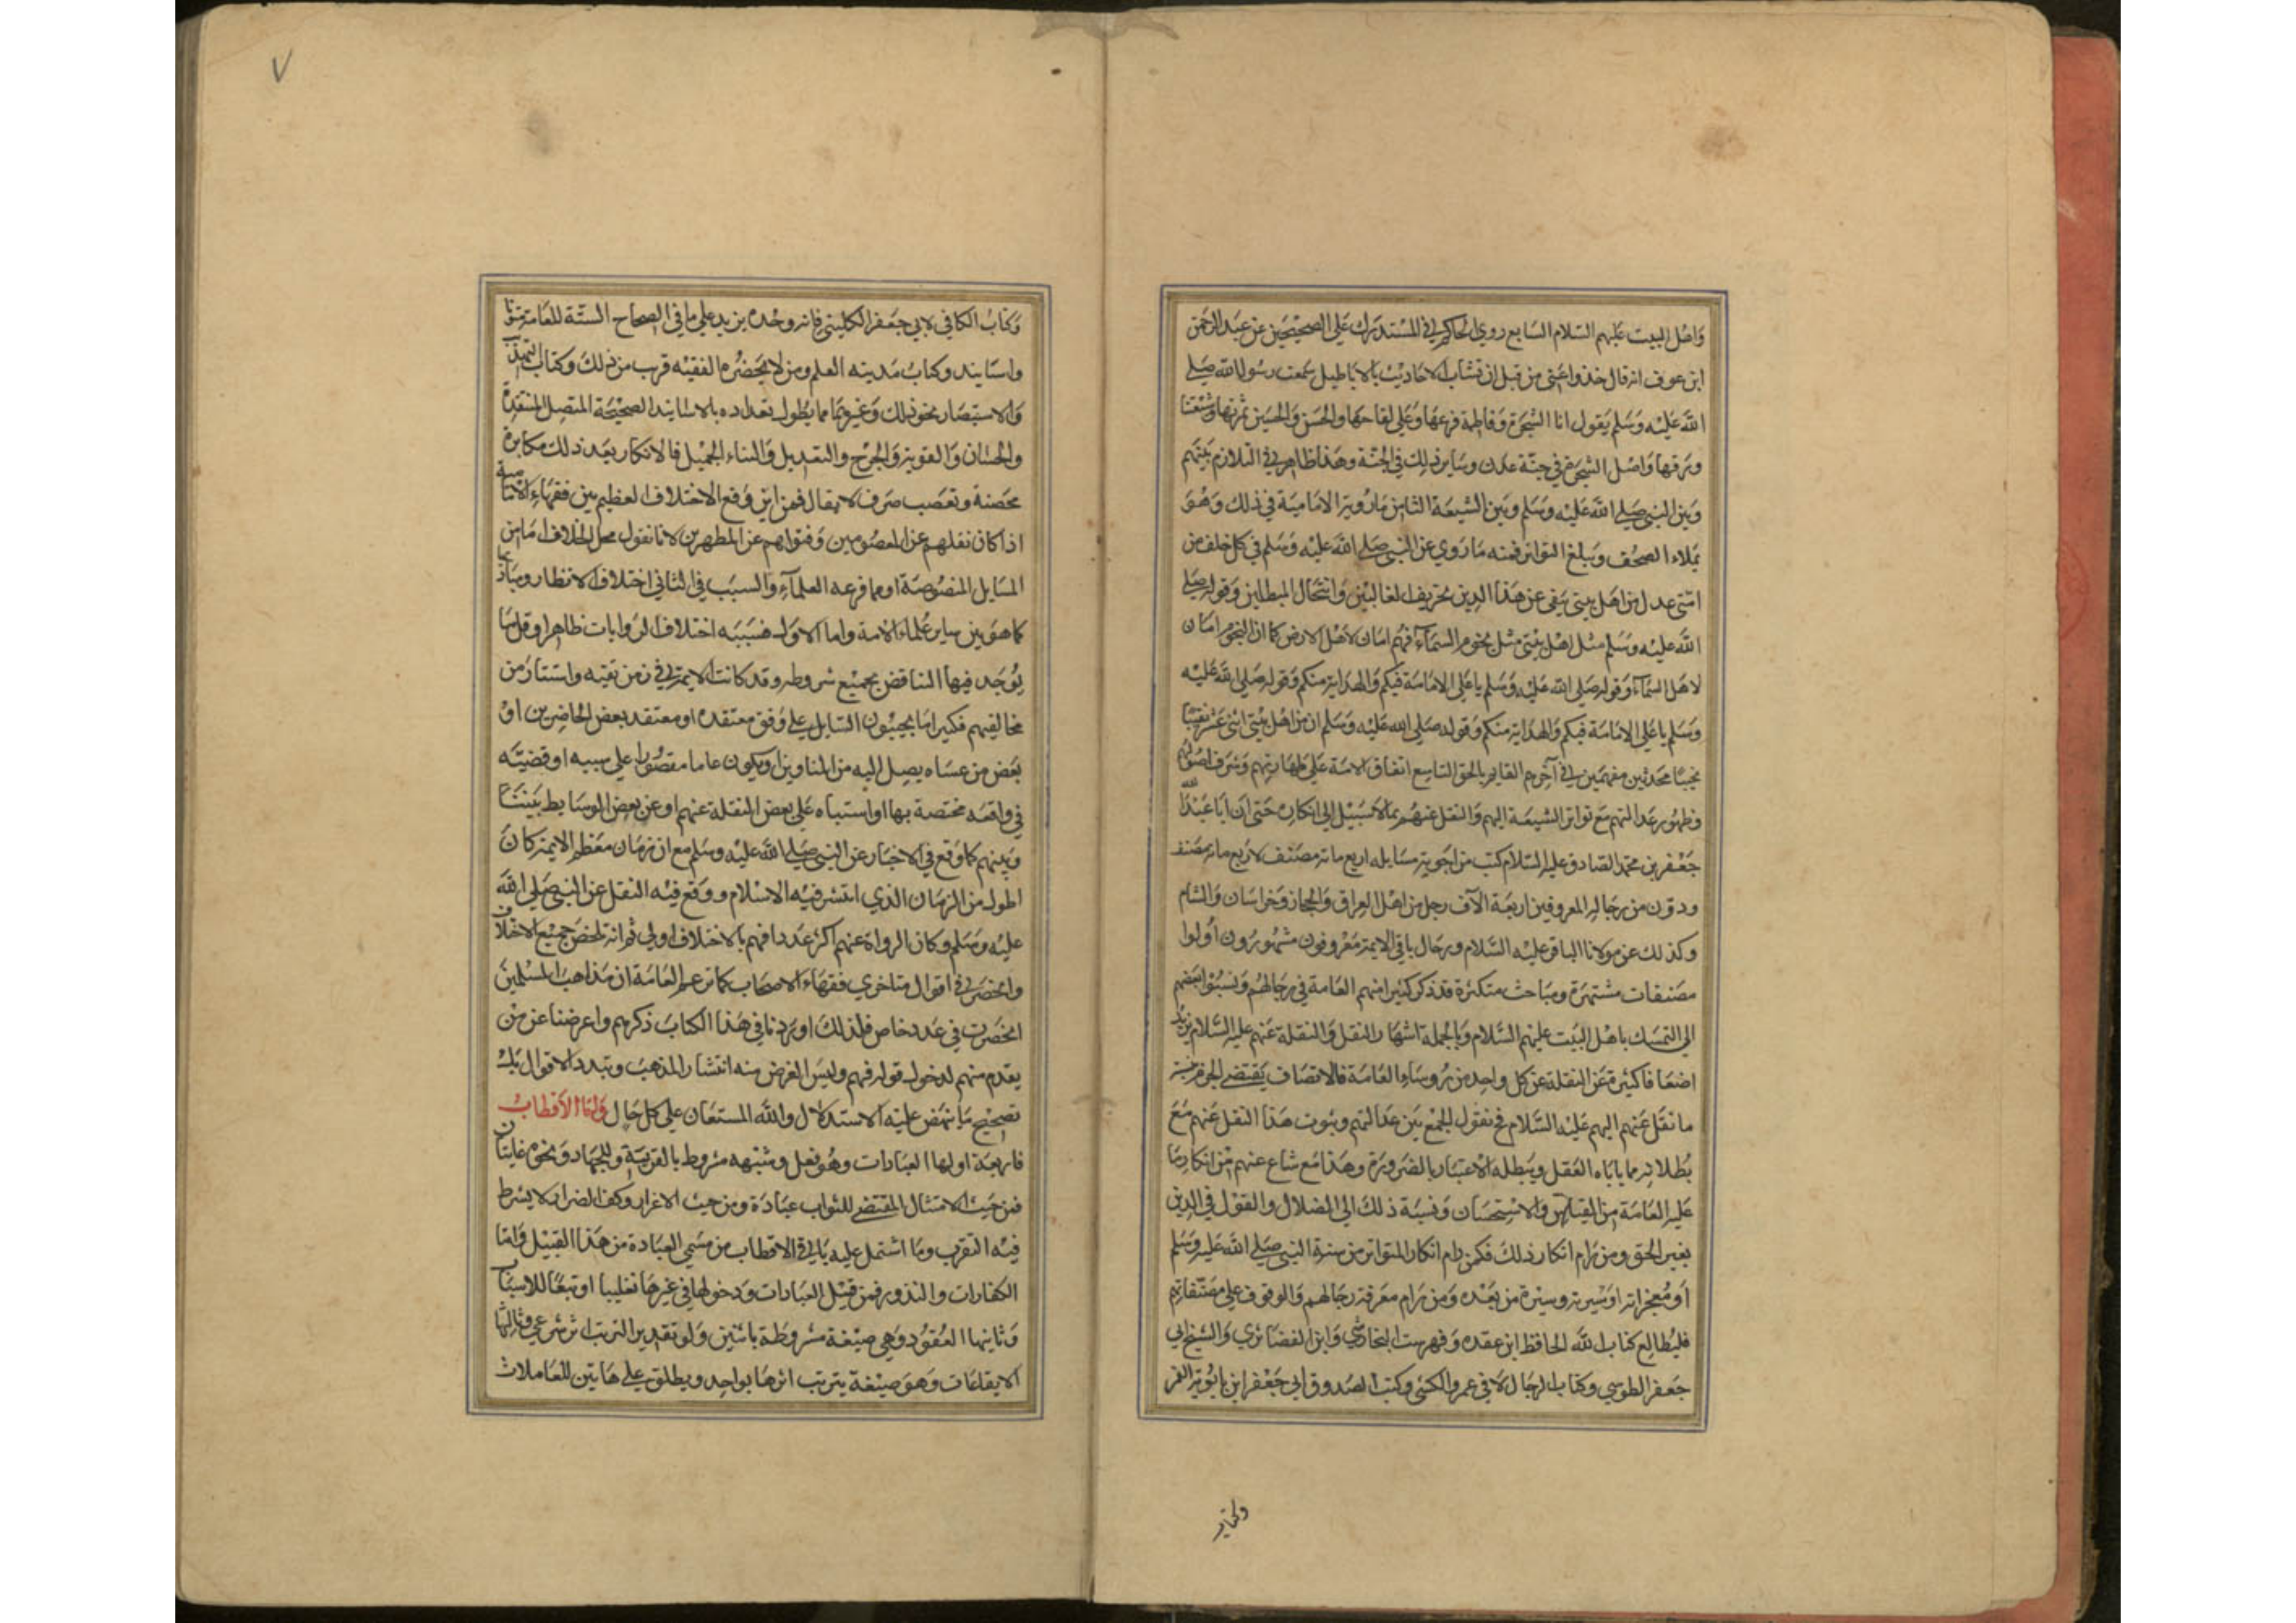 وَاصُل البيت عليهم السّلام السّابع روي الحاكم في المستدرك على الصحيحين عن عبد الرحمن
ابن عوف انه قال خذوا عني من قبل ان تشاب الاحاديث بالاباطيل سمعت رسول الله صلى
الله عليه وسلم يقول انا الشجرة وفاطمة فرعها وعلي لقاحها والحسن والحسين ثمرتها وشيعتنا
ورقها واصل الشجرة في جنة عدن وساير ذلك في الجنة وهذا ظاهر في التلازم بينهم
وبين النبي صلى الله عليه وسلم وبين الشيعة الثامن مارويه الامامية في ذلك وهو
يملاء الصحف وبلغ التواتر فمنه ما روي عن النبي صلى الله عليه وسلم في كل خلف من
امتي عدل من اهل بيتي ينفي عن هذا الدين تحريف الغالين وانتحال المبطلين وقوله صلى
الله عليه وسلم مثل اهل بيتي مثل نجوم السماء فهم امان لاهل الارض كما ان النجوم امان
لاهل السماء وقوله صلى الله عليه وسلم يا على الامامة فيكم والهداية منكم وقوله صلى الله عليه
وسلم يا على الامامة فيكم والهداية منكم وقوله صلى الله عليه وسلم ان من اهل بيتي اثنى عشر نقيبا
نجبا محدثين مفهمين في آخرهم القايم بالحق التاسع اتفاق الامة على طهارتهم وشرف اصولهم
وظهور عدالتهم مع تواتر الشيعة اليهم والنقل عنهم بما لا سبيل الى انكاره حتى ان ابا عبد الله
جعفر بن محمد الصادق عليه السلام كتب من اجوبة مسايله اربع مائة مصنف لاربع مائة مصنف
ودون من رجاله المعروفين اربعة الآف رجل من اهل العراق والحجاز وخراسان والشام
وكذلك عن مولانا الباقر عليه السّلام ورجال باقي الايمة معروفون مشهورون اولوا
مصنفات مشتهرة ومباحث متكثرة قد ذكر كثيرا منهم العامة في رجالهم ونسبوا بعضهم
الى التمسك باهل البيت عليهم السّلام وبالجملة اشهار النقل والنقلة عنهم عليه السّلام يزيد
اضعافا كثيرة عن النقلة عن كل واحد من روساء العامة فالانصاف يقتضي الجزم بنسبة
ما نقل عنهم اليهم عليه السّلام فح نقول الجمع بين عدالتهم وثبوت هذا النقل عنهم مع
بطلانه مما ياباه العقل ويبطله الاعتبار بالضرورة وهذا مع شاع عنهم من انكار ما
عليه العامة من القياس والاستحسان ونسبة ذلك الى الضلال والقول في الدين
بغير الحق ومن رام انكار ذلك فكمن رام انكار المتواتر من سنة النبي صلى الله عليه وسلم
او معجزاته او سيرته وسيرة من بعده ومن رام معرفة رجالهم والوقوف على مصنفاتهم
فليطالع كتاب الله الحافظ ابن عقده وفهرست النجاشي وابن الغضائري والشيخ ابي
جعفر الطوسي وكتاب الرجال لابي عمرو الكشي وكتب الصدوق ابي جعفر ابن بابويه القمي
وكتاب
٧
وكتاب الكافي لابي جعفر الكليني فانه وحده يزيد على ما في الصحاح الستة للعامة متونا
واسانيد وكتاب مدينه العلم ومن لا يحضره الفقيه قرب من ذلك وكتاب التهذيب
والاستبصار نحو ذلك وغيرهما مما يطول تعداده بالاسانيد الصحيحة المتصل المنتقدة
والحسان والقوية والجرح والتعديل والثناء الجميل فالانكار بعد ذلك مكابرة
محصنة وتعصب صرف لا يقال فمن اين وقع الاختلاف العظيم بين فقهاء الامامية
اذا كان نقلهم عن المعصومين وفتواهم عن المطهرين لانا نقول محل الخلاف اما من
المسايل المنصوصة او مما فرعه العلماء والسبب في الثاني اختلاف الانظار ومباديها
كما هو بين ساير علماء الامة واما الاول فسببه اختلاف الروايات ظاهرا وقل ما
يوجد فيها التناقض بجميع شروطه وقد كانت الايمة في زمن تقيه واستتار من
مخالفيهم فكثيرا ما يجيبون السايل على وفق معتقده او معتقد بعض الحاضرين او
بعض من عساه يصل اليه من المناوين او يكون عاما مقصورا على سببه او قضيته
في واقعه مختصة بها او استباه على بعض النقلة عنهم او عن بعض الوسايط بيننا
وبينهم كما وقع في الاخبار عن النبي صلى الله عليه وسلم مع ان زمان معظم الايمة كان
اطول من الزمان الذي انتشر فيه الاسلام ووقع فيه النقل عن النبي صلى الله
عليه وسلم وكان الرواة عنهم اكثر عددا فهم بالاختلاف اولى ثم انه تلخص جميع الاختلاف
وانحصر في اقوال متاخري فقهاء الاصحاب كما زعم العامة ان مذاهب المسلمين
انحصرت في عدد خاص فلذلك اوردنا في هذا الكتاب ذكرهم واعرضنا عن من
يقدم منهم لدخول قوله فهم وليس الغرض منه انتشار المذهب وتبدد الاقوال بل
تصحيح ما ينهض عليه الاستدلال والله المستعان على كل حال واما الأقطاب
فاربعة اولها العبادات وهو فعل وشبهه مشروط بالقربة وللجهاد ونحوه غايتان
فمن حيث الامتثال المقتضي للثواب عبادة ومن حيث الاغراز وكف الضرار لا يشرط
فيه التقرب وما اشتمل عليه باقي الاقطاب من مسمى العبادة من هذا القبيل واما
الكفارات والنذور فمن قبيل العبادات ودخولها في غيرها تغليبا او تبعا للاسباب
وثانيها العقود وهي صيغة مشروطة باثنين ولو تقديرا لترتب اثر شرعي وثالثها
الايقاعات وهو صيغة يترتب اثرها بواحد ويطلق على هاتين المعاملات